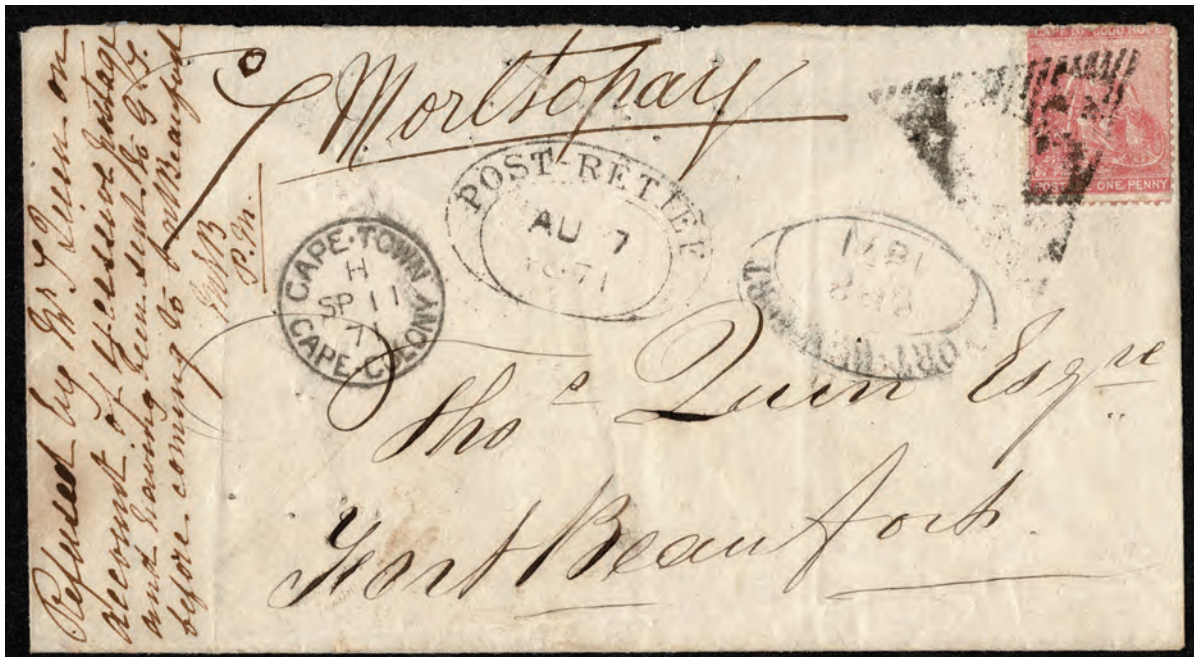 Refused by Mr T Quinn on
account of excessive postage
and having been sent to G. T.
before coming to Fort Beaufort
P.M.
more to pay
CAPE OF GOOD HOPE
ONE PENNY
POST-RETIEF
AU 7
1871
CAPE·TOWN
H
SP 11
71
CAPE·COLONY
1871
Thos Quin Esqre
Fort Beaufort